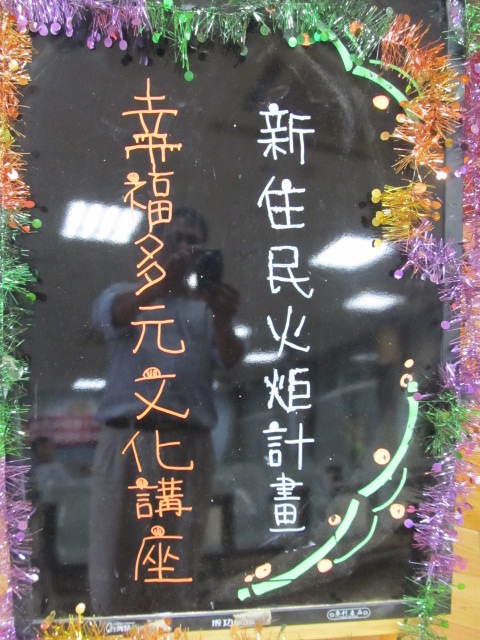 新住民火炬計畫
幸福多元文化講座
成功